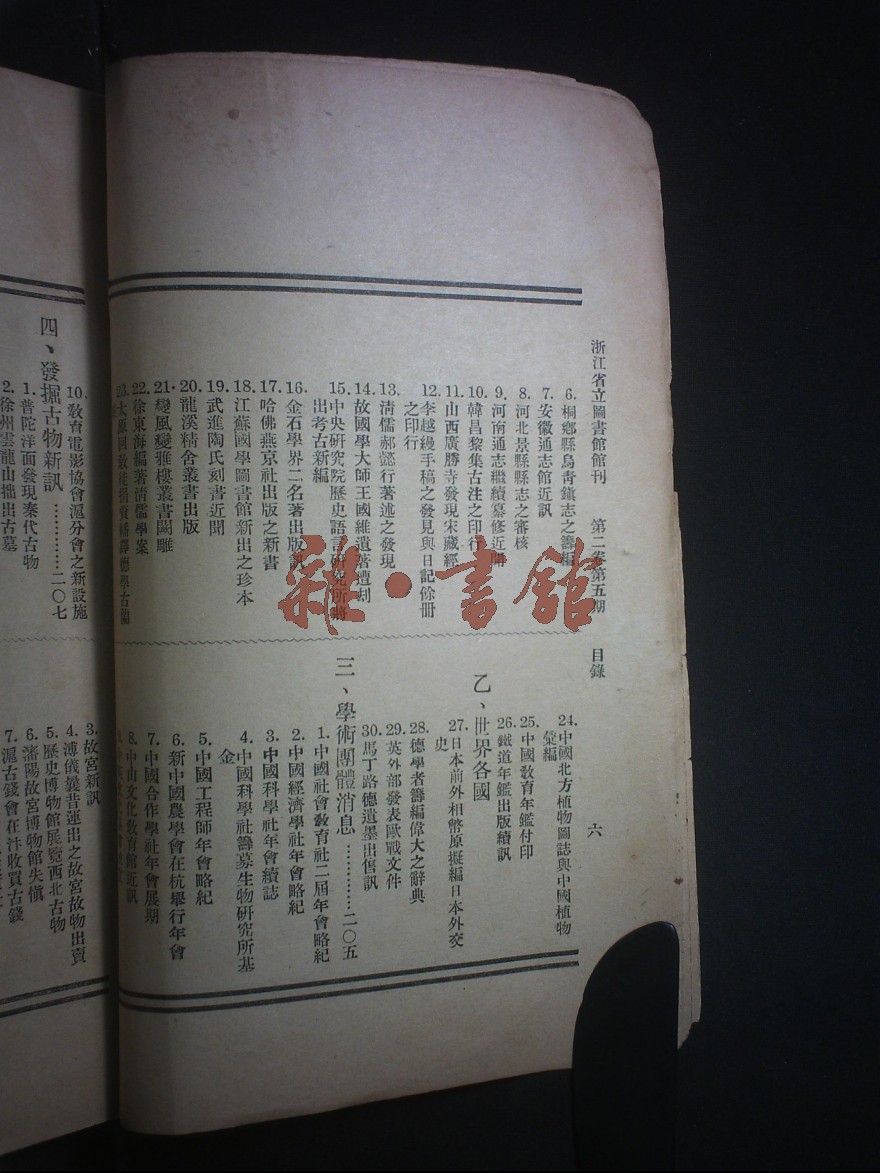 浙江省立圖書館館刊　第二卷第五期　目錄　六
6. 桐鄉縣烏靑鎭志之籌編
7. 安徽通志館近訊
8. 河北景縣縣志之審核
9. 河南通志繼續纂修近聞
10. 韓昌黎集古注之印行
11. 山西廣勝寺發現宋藏經
12. 李越縵手稿之發見與日記餘册
之印行
13. 淸儒郝懿行著述之發現
14. 故國學大師王國維遺著遭刦
15. 中央硏究院歷史語言硏究所將
出考古新編
16. 金石學界二名著出版訊
17. 哈佛燕京社出版之新書
18. 江蘇國學圖書館新出之珍本
19. 武進陶氏刻書近聞
20. 龍溪精舍叢書出版
21. 變風變雅樓叢書開雕
22. 徐東海編著淸儒學案
23. 太原回敎徒捐資繙譯德學古蘭
24. 中國北方植物圖誌與中國植物
彙編
25. 中國敎育年鑑付印
26. 鐵道年鑑出版續訊
乙、世界各國
27. 日本前外相幣原擬編日本外交
史
28. 德學者籌編偉大之辭典
29. 英外部發表歐戰文件
30. 馬丁路德遺墨出售訊
三、學術團體消息…………二〇五
1. 中國社會敎育社二屆年會略紀
2. 中國經濟學社年會略紀
3. 中國科學社年會續誌
4. 中國科學社籌募生物硏究所基
金
5. 中國工程師年會略紀
6. 新中國農學會在杭舉行年會
7. 中國合作學社年會展期
8. 中山文化敎育館近訊
10. 敎育電影協會滬分會之新設施
四、發掘古物新訊…………二〇七
1. 普陀洋面發現秦代古物
2. 徐州雲龍山掘出古墓
3. 故宮新訊
4. 溥儀曩昔運出之故宮故物出賣
5. 歷史博物館展覽西北古物
6. 瀋陽故宮博物館失愼
7. 滬古錢會在汴收買古錢
雜·書館